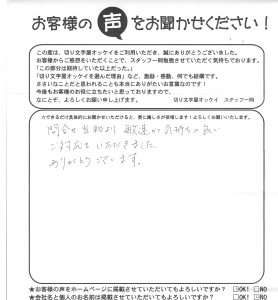 お客様の声をお聞かせください!
この度は、切り文字屋オッケイをご利用いただき、誠にありがとうございました。
お客様からご感想をいただくことで、スタッフ一同勉強させていただく気持ちでおります。
「この部分は期待していた以上だった。」
「切り文字屋オッケイを選んだ理由」など、激励・感動、何でも結構です。
ささいなことだと思われることも本当にありがたいお言葉なのです!
今後もお客様のお役に立ちたいと思っておりますので、
なにとぞ、よろしくお願い申し上げます。 切り文字屋オッケイ スタッフ一同
☆できるだけ具体的にお聞かせいただけると、更に嬉しさが倍増します!よろしくお願いいたします。
問合せ当初より 敏速か気持ちの良い
ご対応を いただきました。
ありがとうございます。
★お客様の声をホームページに掲載させていただいてもよろしいですか? □OK! □NO
★会社名と個人のお名前は掲載させていただいてもよろしいですか? □OK! □NO